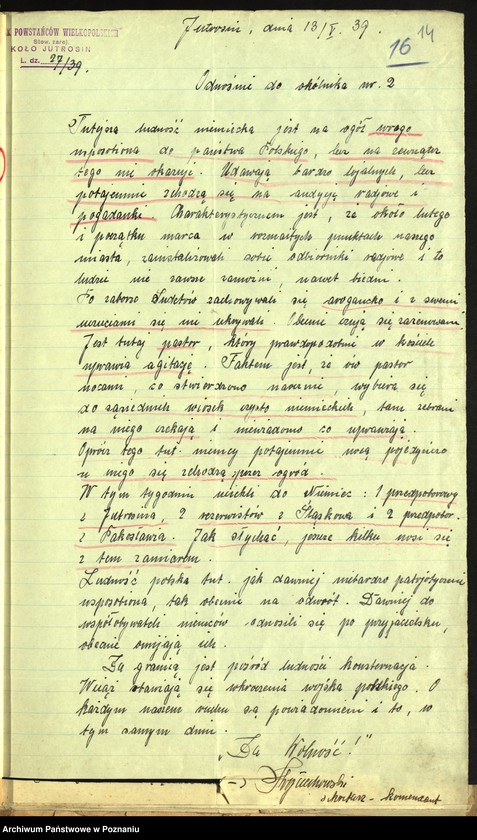 K POWSTAŃCÓW WIELKOPOLSKICH
Stow. zarej.
KOŁO JUTROSIN
L. dz. 27/39.
Jutrosin, dnia 13/V. 39.
16 14
Odnośnie do okólnika nr. 2
Tutejsza ludność niemiecka jest na ogół wrogo
usposobiona do państwa Polskiego, lecz na zewnątrz
tego nie okazuje. Udawają bardzo lojalnych, lecz
potajemnie schodzą się na audycje radjowe i
pogadanki. Charakterystycznem jest, że około lutego
i początku marca w rozmaitych punktach naszego
miasta, zainstalizowali sobie odbiorniki radjowe i to
ludzie nie zawsze zamożni, nawet biedni.
Po zaborze Sudetów zachowywali się arogancko i z swemi
uczuciami się nie ukrywali. Obecnie czują się
Jest tutaj pastor, który prawdopodobnie w kościele
uprawia agitację. Faktem jest, że ów pastor
nocami, co stwierdzono naocznie, wybiera się
do sąsiednich wiosek czysto niemieckich, tam zebrani
na niego czekają i niewiadomo co uprawiają.
Oprócz tego tut. niemcy potajemnie nocą pojedyńczo
u niego się schodzą przez ogród.
W tym tygodniu uciekli do Niemiec: 1 przedpoborowy
z Jutrosina, 2 rezerwistów z Śląskowa i 2 przedpobor.
z Pakosławia. Jak słychać, jeszcze kilku nosi się
z tem zamiarem.
Ludność polska tut. jak dawniej niebardzo patrjotycznie
usposobiona, tak obecnie na odwrót. Dawniej do
współobywateli niemców odnosili się po przyjacielsku,
obecnie omijają ich.
Za granicą jest pośród ludności konsternacja.
Wciąż obawiają się wkroczenia wojska polskiego. O
każdym naszem ruchu są powiadomieni i to, w
tym samym dniu.
"Za Wolność!"
(-)
- komendant
Archiwum Państwowe w Poznaniu